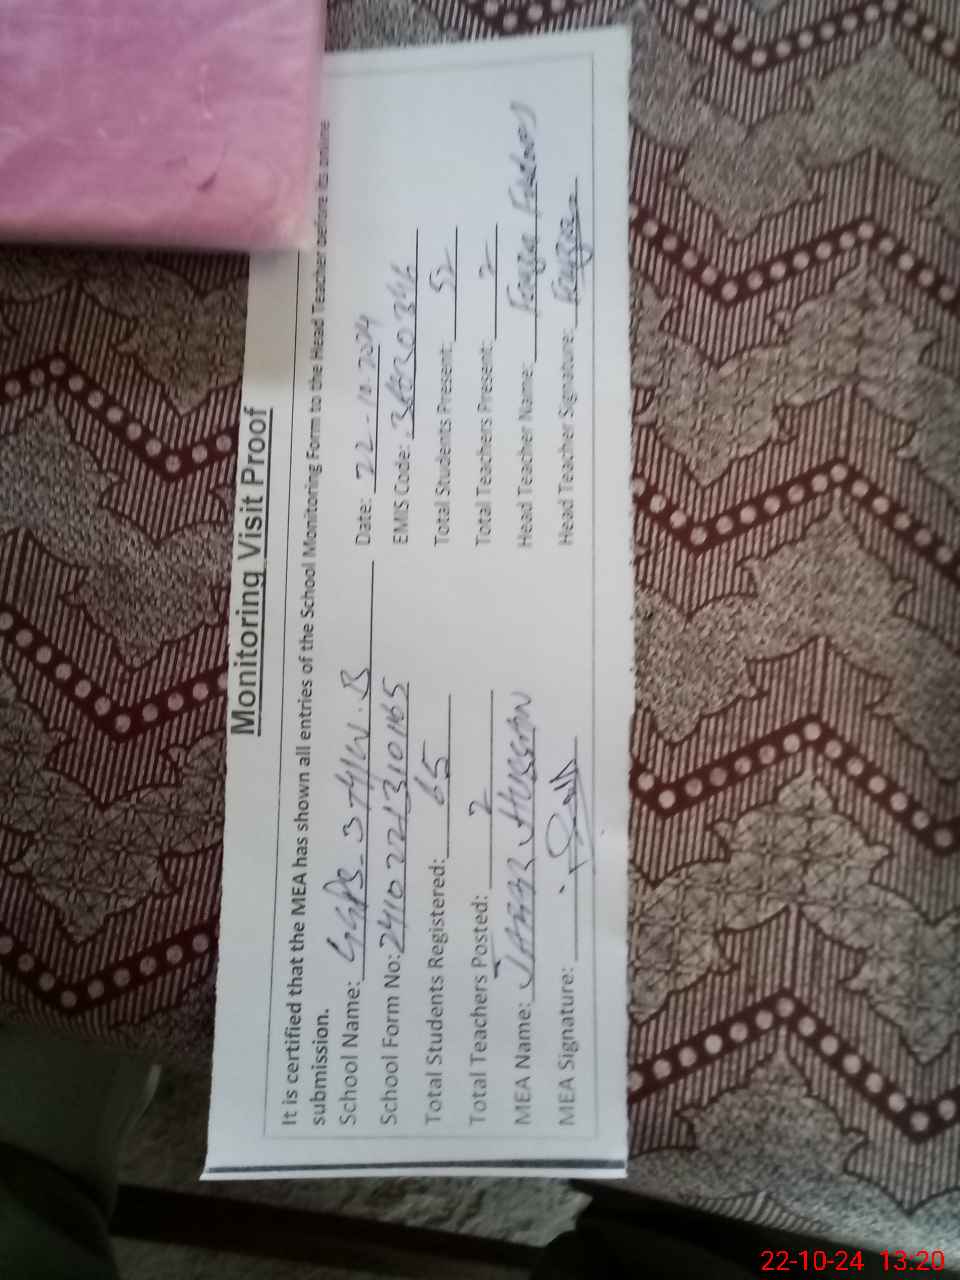 Monitoring Visit Proof
It is certified that the MEA has shown all entries of the School Monitoring Form to the Head Teacher before its online
submission.
School Name: GGPS-3-T/W.B Date: 22-10-2024
School Form No: 2410221310165 EMIS Code:
Total Students Registered: 65 Total Students Present: 52
Total Teachers Posted: 2 Total Teachers Present: 2
MEA Name: HUSSAIN Head Teacher Name:
MEA Signature: Head Teacher Signature:
22-10-24 13:20